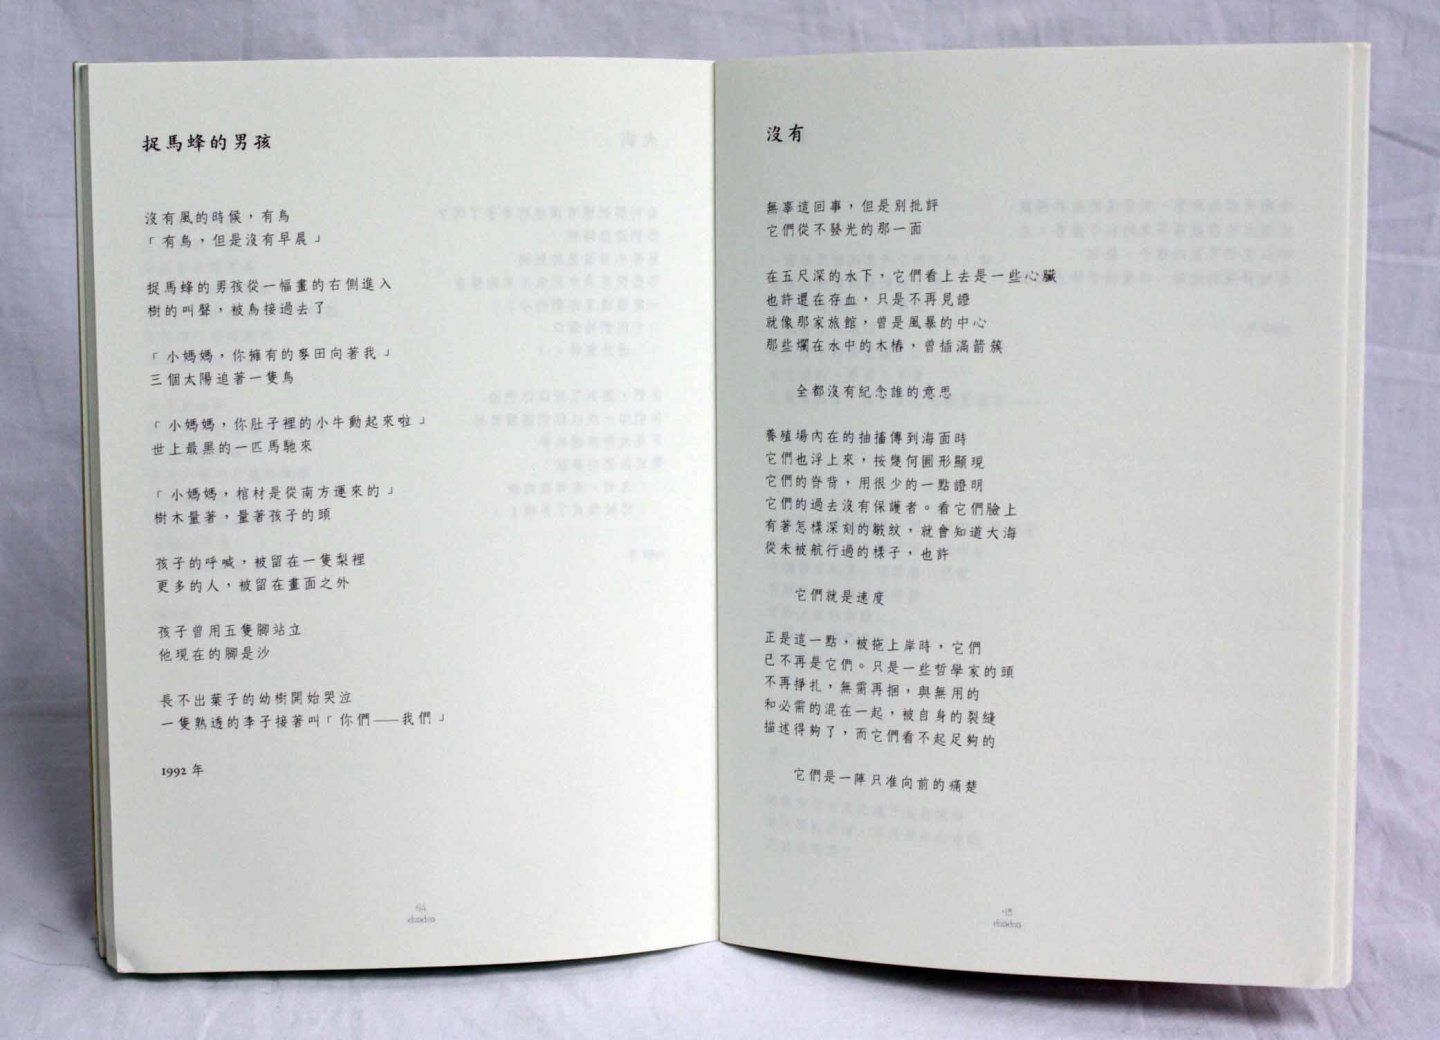 捉馬蜂的男孩
沒有風的時候，有鳥
「有鳥，但是沒有早晨」
捉馬蜂的男孩從一幅畫的右側進入
樹的叫聲，被鳥接過去了
「小媽媽，你擁有的麥田向著我」
三個太陽追著一隻鳥
「小媽媽，你肚子裡的小牛動起來啦」
世上最黑的一匹馬馳來
「小媽媽，棺材是從南方運來的」
樹木量著，量著孩子的頭
孩子的呼喊，被留在一隻梨裡
更多的人，被留在畫面之外
孩子曾用五隻腳站立
他現在的腳是沙
長不出葉子的幼樹開始哭泣
一隻熟透的李子接著叫「你們——我們」
1992 年
沒有
無辜這回事，但是別批評
它們從不發光的那一面
在五尺深的水下，它們看上去是一些心臟
也許還在存血，只是不再見證
就像那家旅館，曾是風暴的中心
那些爛在水中的木樁，曾插滿箭簇
全都沒有紀念誰的意思
養殖場內在的抽搐傳到海面時
它們也浮上來，按幾何圓形顯現
它們的脊背，用很少的一點證明
它們的過去沒有保護者。看它們臉上
有著怎樣深刻的皺紋，就會知道大海
從未被航行過的樣子，也許
它們就是速度
正是這一點，被拖上岸時，它們
已不再是它們。只是一些哲學家的頭
不再掙扎，無需再捆，與無用的
和必需的混在一起，被自身的裂縫
描述得夠了，而它們看不起足夠的
它們是一陣只准向前的痛楚